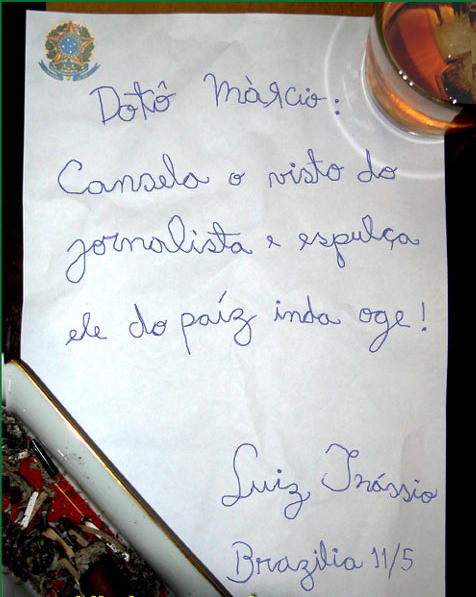 Dotô Màrcio:
Cansela o visto do
jornalista e espulça
ele do paíz inda oge!
Luiz Inássio
Brazilia 11/5